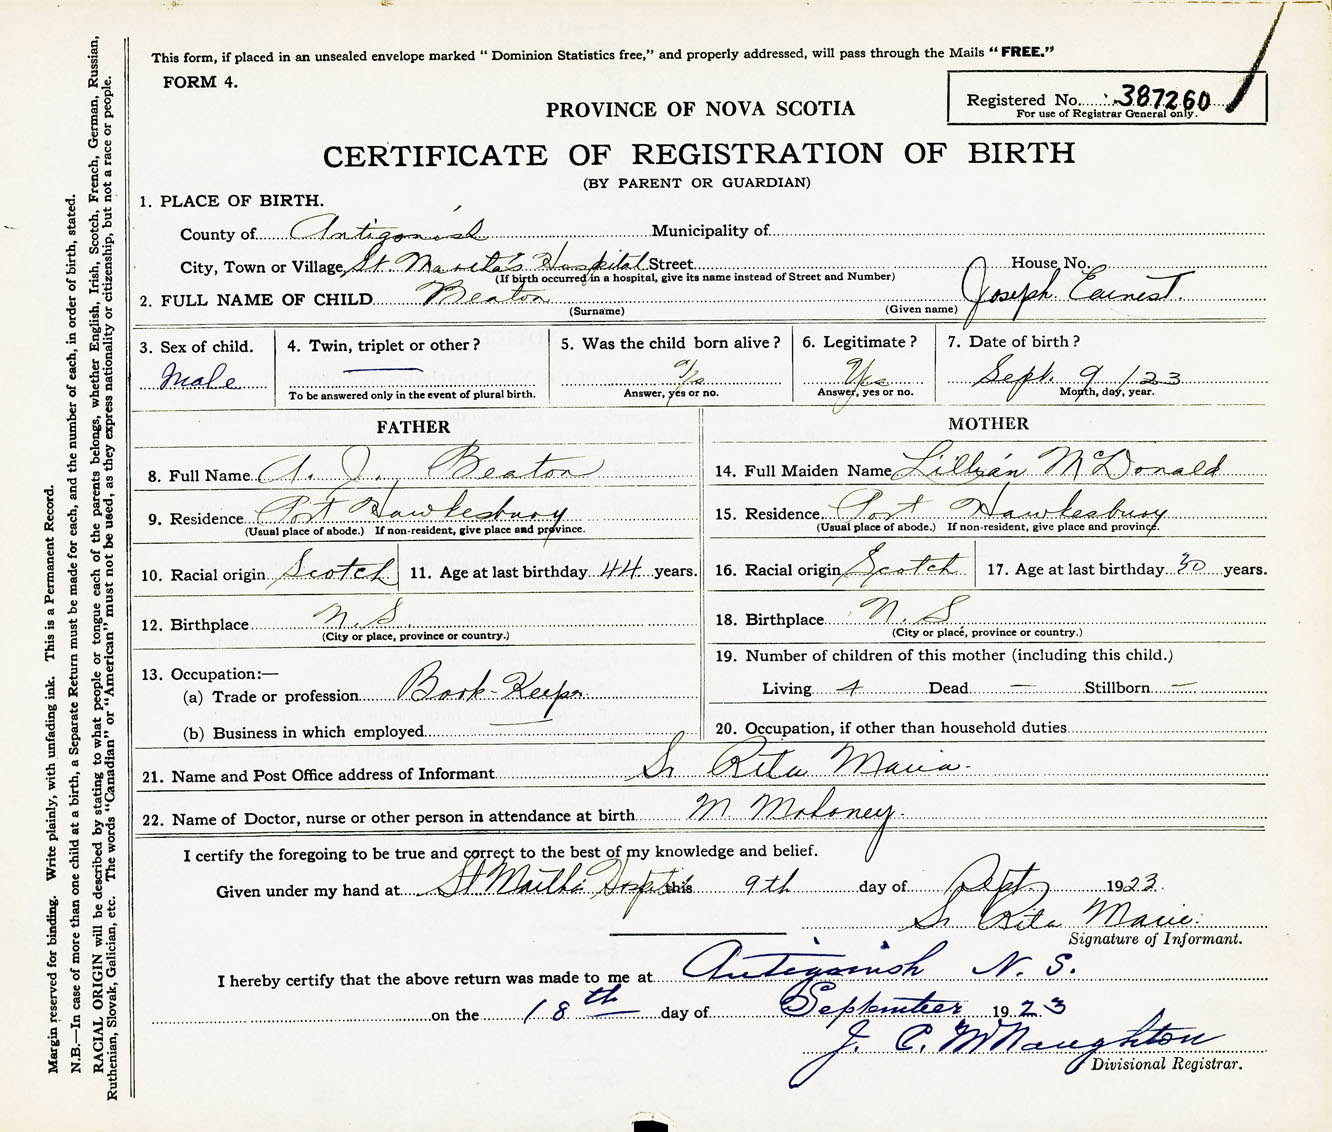 This form, if placed in an unsealed envelope marked “ Dominion Statistics free,” and properly addressed, will pass through the Mails “ FREE.”
FORM 4.
Registered No. 387260
For use of Registrar General only.
PROVINCE OF NOVA SCOTIA
CERTIFICATE OF REGISTRATION OF BIRTH
(BY PARENT OR GUARDIAN)
1. PLACE OF BIRTH.
County of Antigonish Municipality of
City, Town or Village St. Martha's Hospital Street House No.
(If birth occurred in a hospital, give its name instead of Street and Number)
2. FULL NAME OF CHILD Beaton Joseph Earnest.
(Surname) (Given name)
3. Sex of child. 4. Twin, triplet or other ? 5. Was the child born alive ? 6. Legitimate ? 7. Date of birth ?
Male — Yes Yes Sept. 9 /23
To be answered only in the event of plural birth. Answer, yes or no. Answer, yes or no. Month, day, year.
FATHER
8. Full Name A. J. Beaton
9. Residence Port Hawkesbury
(Usual place of abode.) If non-resident, give place and province.
10. Racial origin Scotch 11. Age at last birthday 44 years.
12. Birthplace N. S.
(City or place, province or country.)
13. Occupation:—
(a) Trade or profession Book-Keeper
(b) Business in which employed —
MOTHER
14. Full Maiden Name Lillian McDonald
15. Residence Port Hawkesbury
(Usual place of abode.) If non-resident, give place and province.
16. Racial origin Scotch 17. Age at last birthday 30 years.
18. Birthplace N. S.
(City or place, province or country.)
19. Number of children of this mother (including this child.)
Living 4 Dead — Stillborn —
20. Occupation, if other than household duties
21. Name and Post Office address of Informant Sr Rita Maria.
22. Name of Doctor, nurse or other person in attendance at birth M Mahoney.
I certify the foregoing to be true and correct to the best of my knowledge and belief.
Given under my hand at St Martha's Hospital this 9th day of Sept. 1923.
Sr Rita Marie.
Signature of Informant.
I hereby certify that the above return was made to me at Antigonish N. S.
on the 18th day of September 1923
J. C. McNaughton
Divisional Registrar.
Margin reserved for binding. Write plainly, with unfading ink. This is a Permanent Record.
N.B.—In case of more than one child at a birth, a Separate Return must be made for each, and the number of each, in order of birth, stated.
RACIAL ORIGIN will be described by stating to what people or tongue each of the parents belongs, whether English, Irish, Scotch, French, German, Russian,
Ruthenian, Slovak, Galician, etc. The words “Canadian” or “American” must not be used, as they express nationality or citizenship, but not a race or people.